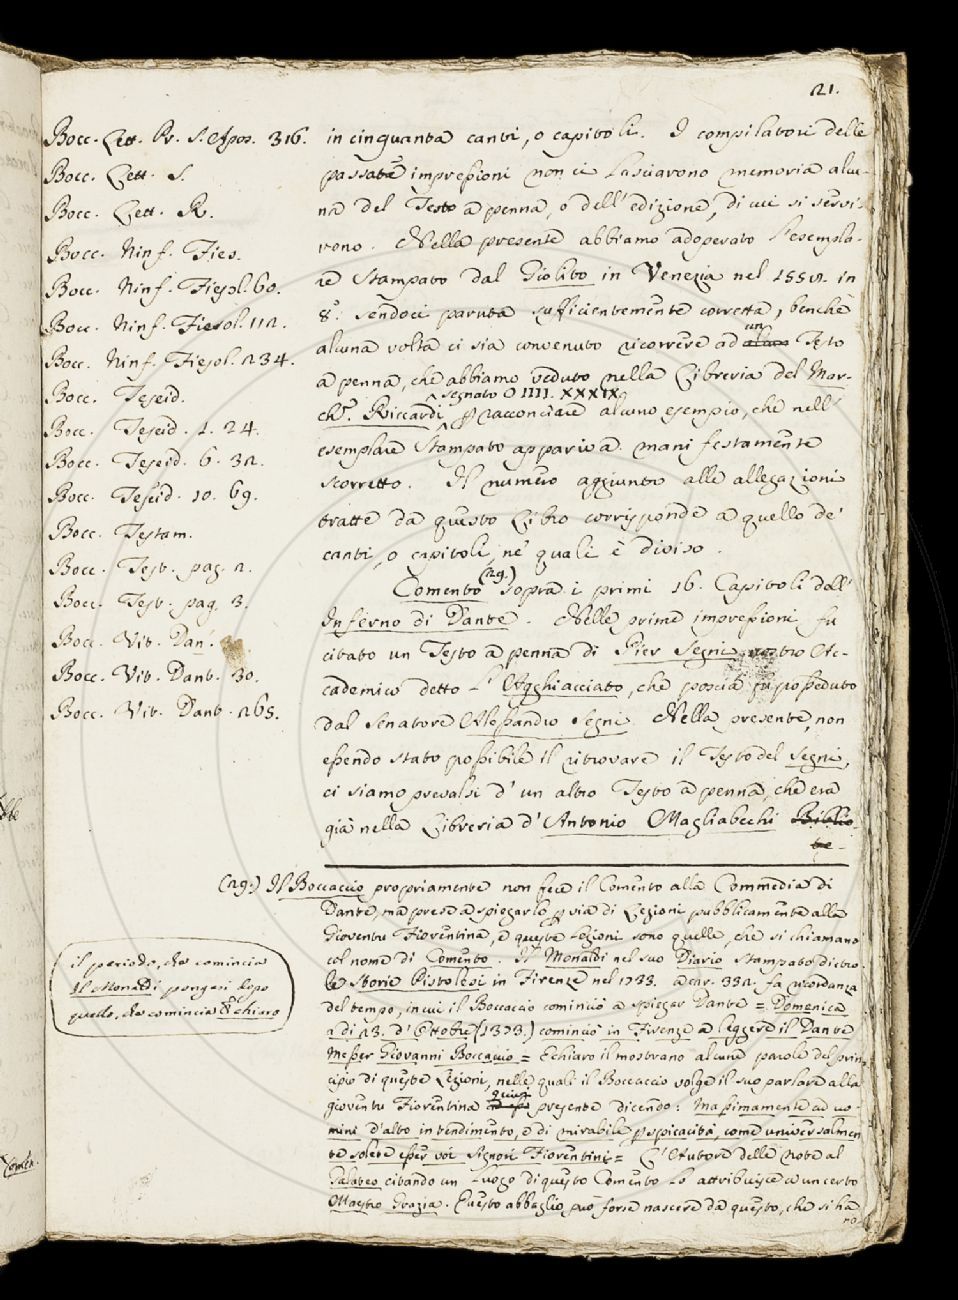 21.
Bocc. Lett. Pr. S. Apos. 316.
Bocc. Lett. S.
Bocc. Lett. R.
Bocc. Ninf. Fies.
Bocc. Ninf. Fiesol. 60.
Bocc. Ninf. Fiesol. 112.
Bocc. Ninf. Fiesol. 234.
Bocc. Teseid.
Bocc. Teseid. 1. 24.
Bocc. Teseid. 6. 32.
Bocc. Teseid. 10. 69.
Bocc. Testam.
Bocc. Test. pag. 2.
Bocc. Test. pag. 3.
Bocc. Vit. Dan.
Bocc. Vit. Dant. 30.
Bocc. Vit. Dant. 265.
in cinquanta canti, o capitoli. I compilatori delle
passate impressioni non ci lasciarono memoria alcu-
na del Testo a penna, o dell'edizione, di cui si servi-
rono. Nella presente abbiamo adoperato l'esempla-
re stampato dal Giolito in Venezia nel 1558. in
8°. sendoci paruta sufficientemente corretta, benchè
alcuna volta ci sia convenuto ricorrere ad alcun un Testo
a penna, che abbiamo veduto nella Libreria del Mar-
segnato O IIII. XXXIX.
ch.e Riccardi p racconciare alcuno esempio, che nell'
esemplare stampato appariva manifestamente
scorretto. Il numero aggiunto alle allegazioni
tratte da questo Libro corrisponde a quello de'
canti, o capitoli, ne' quali è diviso.
Comento (29.) sopra i primi 16. Capitoli dell'
Inferno di Dante. Nelle prime impressioni fu
citato un Testo a penna di Pier Segni nostro Ac-
cademico detto l'Agghiacciato, che poscia fu posseduto
dal Senatore Alessandro Segni. Nella presente, non
essendo stato possibile il ritrovare il Testo del Segni,
ci siamo prevalsi d'un altro Testo a penna, che era
già nella Libreria d'Antonio Magliabechi Biblio
te-
(29.) Il Boccaccio propriamente non fece il Comento alla Commedia di
Dante, ma prese a spiegarlo p via di Lezioni pubblicamente alla
Gioventu Fiorentina, e queste Lezioni sono quelle, che si chiamano
col nome di Comento. Il Monaldi nel suo Diario stampato dietro
le Storie Pistolesi in Firenze nel 1733. a car. 332. fa ricordanza
del tempo, in cui il Boccaccio cominciò a spiegar Dante = Domenica
a dì 23. d'Ottobre (1373.) cominciò in Firenze a leggere il Dante
Messer Giovanni Boccaccio = E chiaro il mostrano alcune parole del prin-
cipio di queste Lezioni, nelle quali il Boccaccio volge il suo parlare alla
gioventu Fiorentina quivi presente dicendo: Massimamente ad uo-
mini d'alto intendimento, e di mirabile pspicacità, come universalmen
te solete esser voi Signori Fiorentini = L'Autore delle Note al
Galateo citando un Luogo di questo Comento lo attribuisce a un certo
Maestro Grazia. Questo abbaglio può forse nascere da questo, che si ha
no
il periodo, che comincia
Il Monaldi pongasi dopo
quello, che comincia E chiaro
Comen.